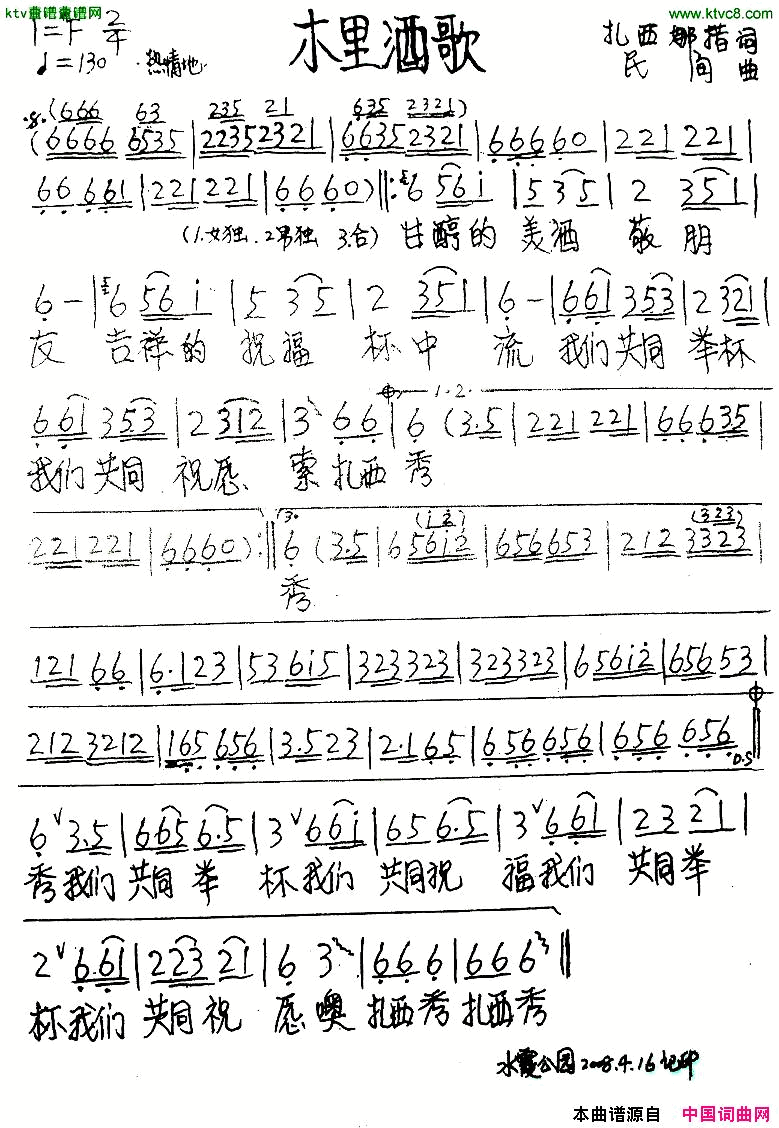 ktv曲谱曲谱网 www.ktvc8.com
1=F 2/4 木里酒歌 扎西娜措 词
♩=130 热情地 民间 曲
(666 63 235 21 635 2321)
(6666 6535 | 2235 2321 | 6635 2321 | 66660 | 221 221 |
66 661 | 221 221 | 6660) ‖: 6 561 | 5 35 | 2 351 |
(1.女独.2男独 3.合) 甘醇的 美酒 敬朋
6 - | 6 561 | 5 35 | 2 351 | 6 - | 661 353 | 2 321 |
友 吉祥的 祝福 杯中 流 我们共同 举杯
1.2.
661 353 | 2 312 | 3 66 | 6 (3.5 | 221 221 | 66635 |
我们共同 祝愿 索扎西 秀
(1 2) (323)
221221 | 6660) :‖ 3. 6 (3.5 | 6 5612 | 656653 | 212 3323 |
秀
121 66 | 6.123 | 53 615 | 323323 | 323323 | 6 5612 | 65653 |
212 3212 | 165 656 | 3.5 23 | 2.1 65 | 656 656 | 656 656 ‖ D.S
6 ∨ 3.5 | 665 6.5 | 3 ∨ 661 | 65 6.5 | 3 ∨ 661 | 23 21 |
秀我们 共同 举 杯我们 共同祝 福我们 共同举
2 ∨ 6.61 | 223 21 | 6 3 | 66 6 | 66 6 ‖
杯我们 共同祝 愿噢 扎西秀扎西秀
水霞公园2008.4.16记印
本曲谱源自 中国词曲网